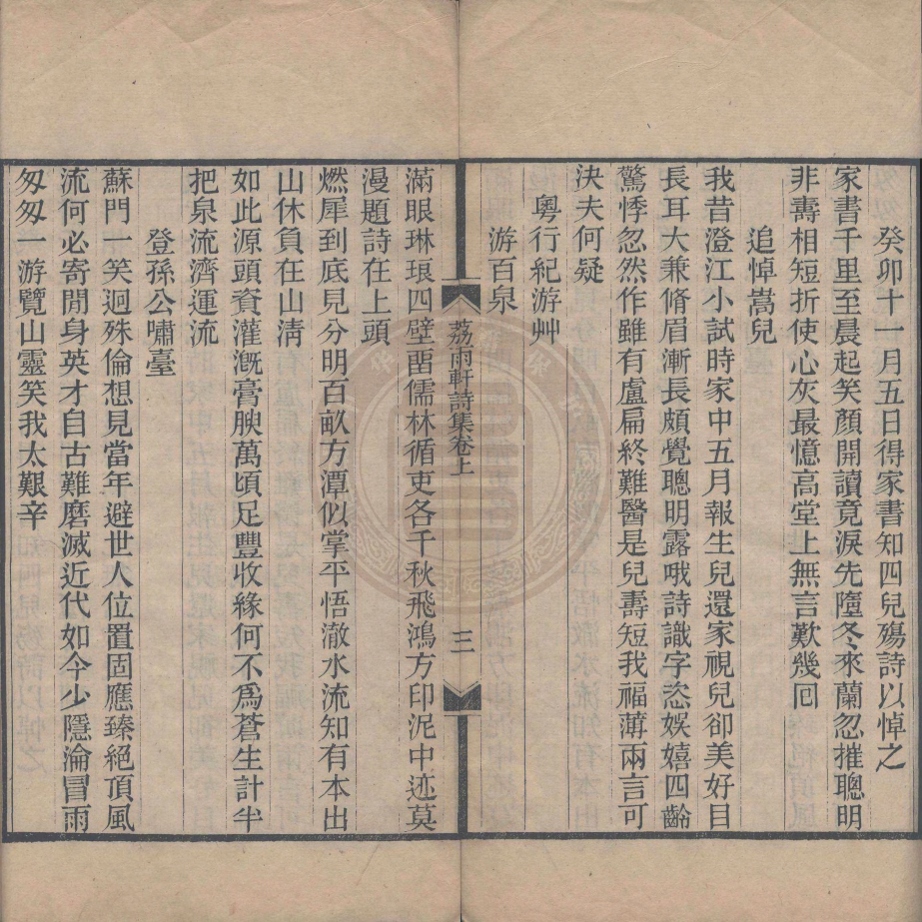 癸卯十一月五日得家書知四兒殤詩以悼之
家書千里至晨起笑顏開讀竟淚先墮冬來蘭忽摧聰明
非壽相短折使心灰最憶高堂上無言歎幾回
追悼嵩兒
我昔澄江小試時家中五月報生兒還家視兒卻美好目
長耳大兼脩眉漸長頗覺聰明露哦詩識字恣娛嬉四齡
驚悸忽然作雖有盧扁終難醫是兒壽短我福薄兩言可
決夫何疑
粵行紀游艸
游百泉
荔雨軒詩集卷上
三
滿眼琳琅四壁畱儒林循吏各千秋飛鴻方印泥中迹莫
漫題詩在上頭
燃犀到底見分明百畝方潭似掌平悟澈水流知有本出
山休負在山淸
如此源頭資灌溉膏腴萬頃足豐收緣何不爲蒼生計半
把泉流濟運流
登孫公嘯臺
蘇門一笑迥殊倫想見當年避世人位置固應臻絕頂風
流何必寄閒身英才自古難磨滅近代如今少隱淪冒雨
匆匆一游覽山靈笑我太艱辛